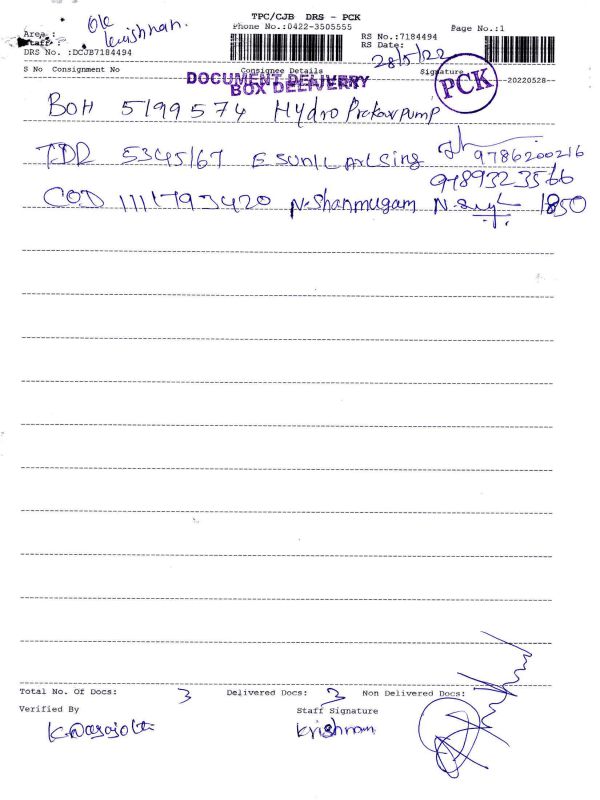 TPC/CJB DRS - PCK
Phone No.:0422-3505555
Page No.:1
Area :
Staff :
OLC
krishnan.
RS No.:7184494
RS Date:
28/5/22
DRS No. :DCJB7184494
S No Consignment No Consignee Details Signature
--20220528--
DOCUMENT DELIVERY
BOX DELIVERY
PCK
BOH 5199574 Hydro pump
TDR 5345167 9786200216
9789323566
COD 1111793420 N. Shanmugam 1850
Total No. Of Docs: 3 Delivered Docs: 3 Non Delivered Docs:
Verified By Staff Signature
Krishnan